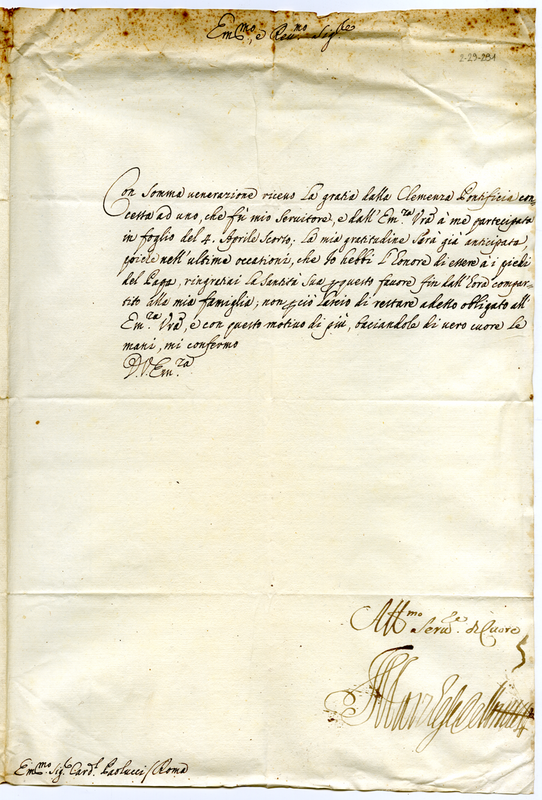 Em.mo, e Rev.mo Sig.re
2-29-281
Con somma venerazione riceuo la gratia dalla Clemenza Pontificia con
cessa ad uno, che fù mio Seruitore, e dall'Em.za Vr̃a à me partecipata
in foglio del 4. Aprile scorso. La mia gratitudine sarà già anticipata,
poiche nell'ultime occationi, che Io hebbi l'honore di essere à i piedi
del Papa, ringratiai la Santità Sua questo fauore fin dall'hora compar=
tito alla mia famiglia; non ciò lascio di restare adesso obligato all'
Em.za Vr̃a, e con questo motiuo di più, baciandole di uero cuore le
mani, mi confermo
D. V. Em.za
Aff.mo Seru.re di Cuore
Em.mo Sig.r Card.l Paolucci / Roma